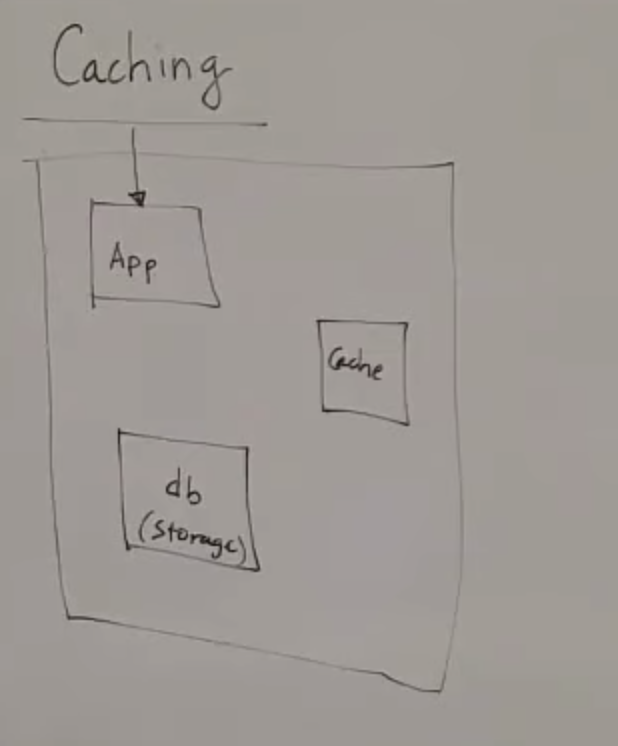 Caching
App
Cache
db
(Storage)